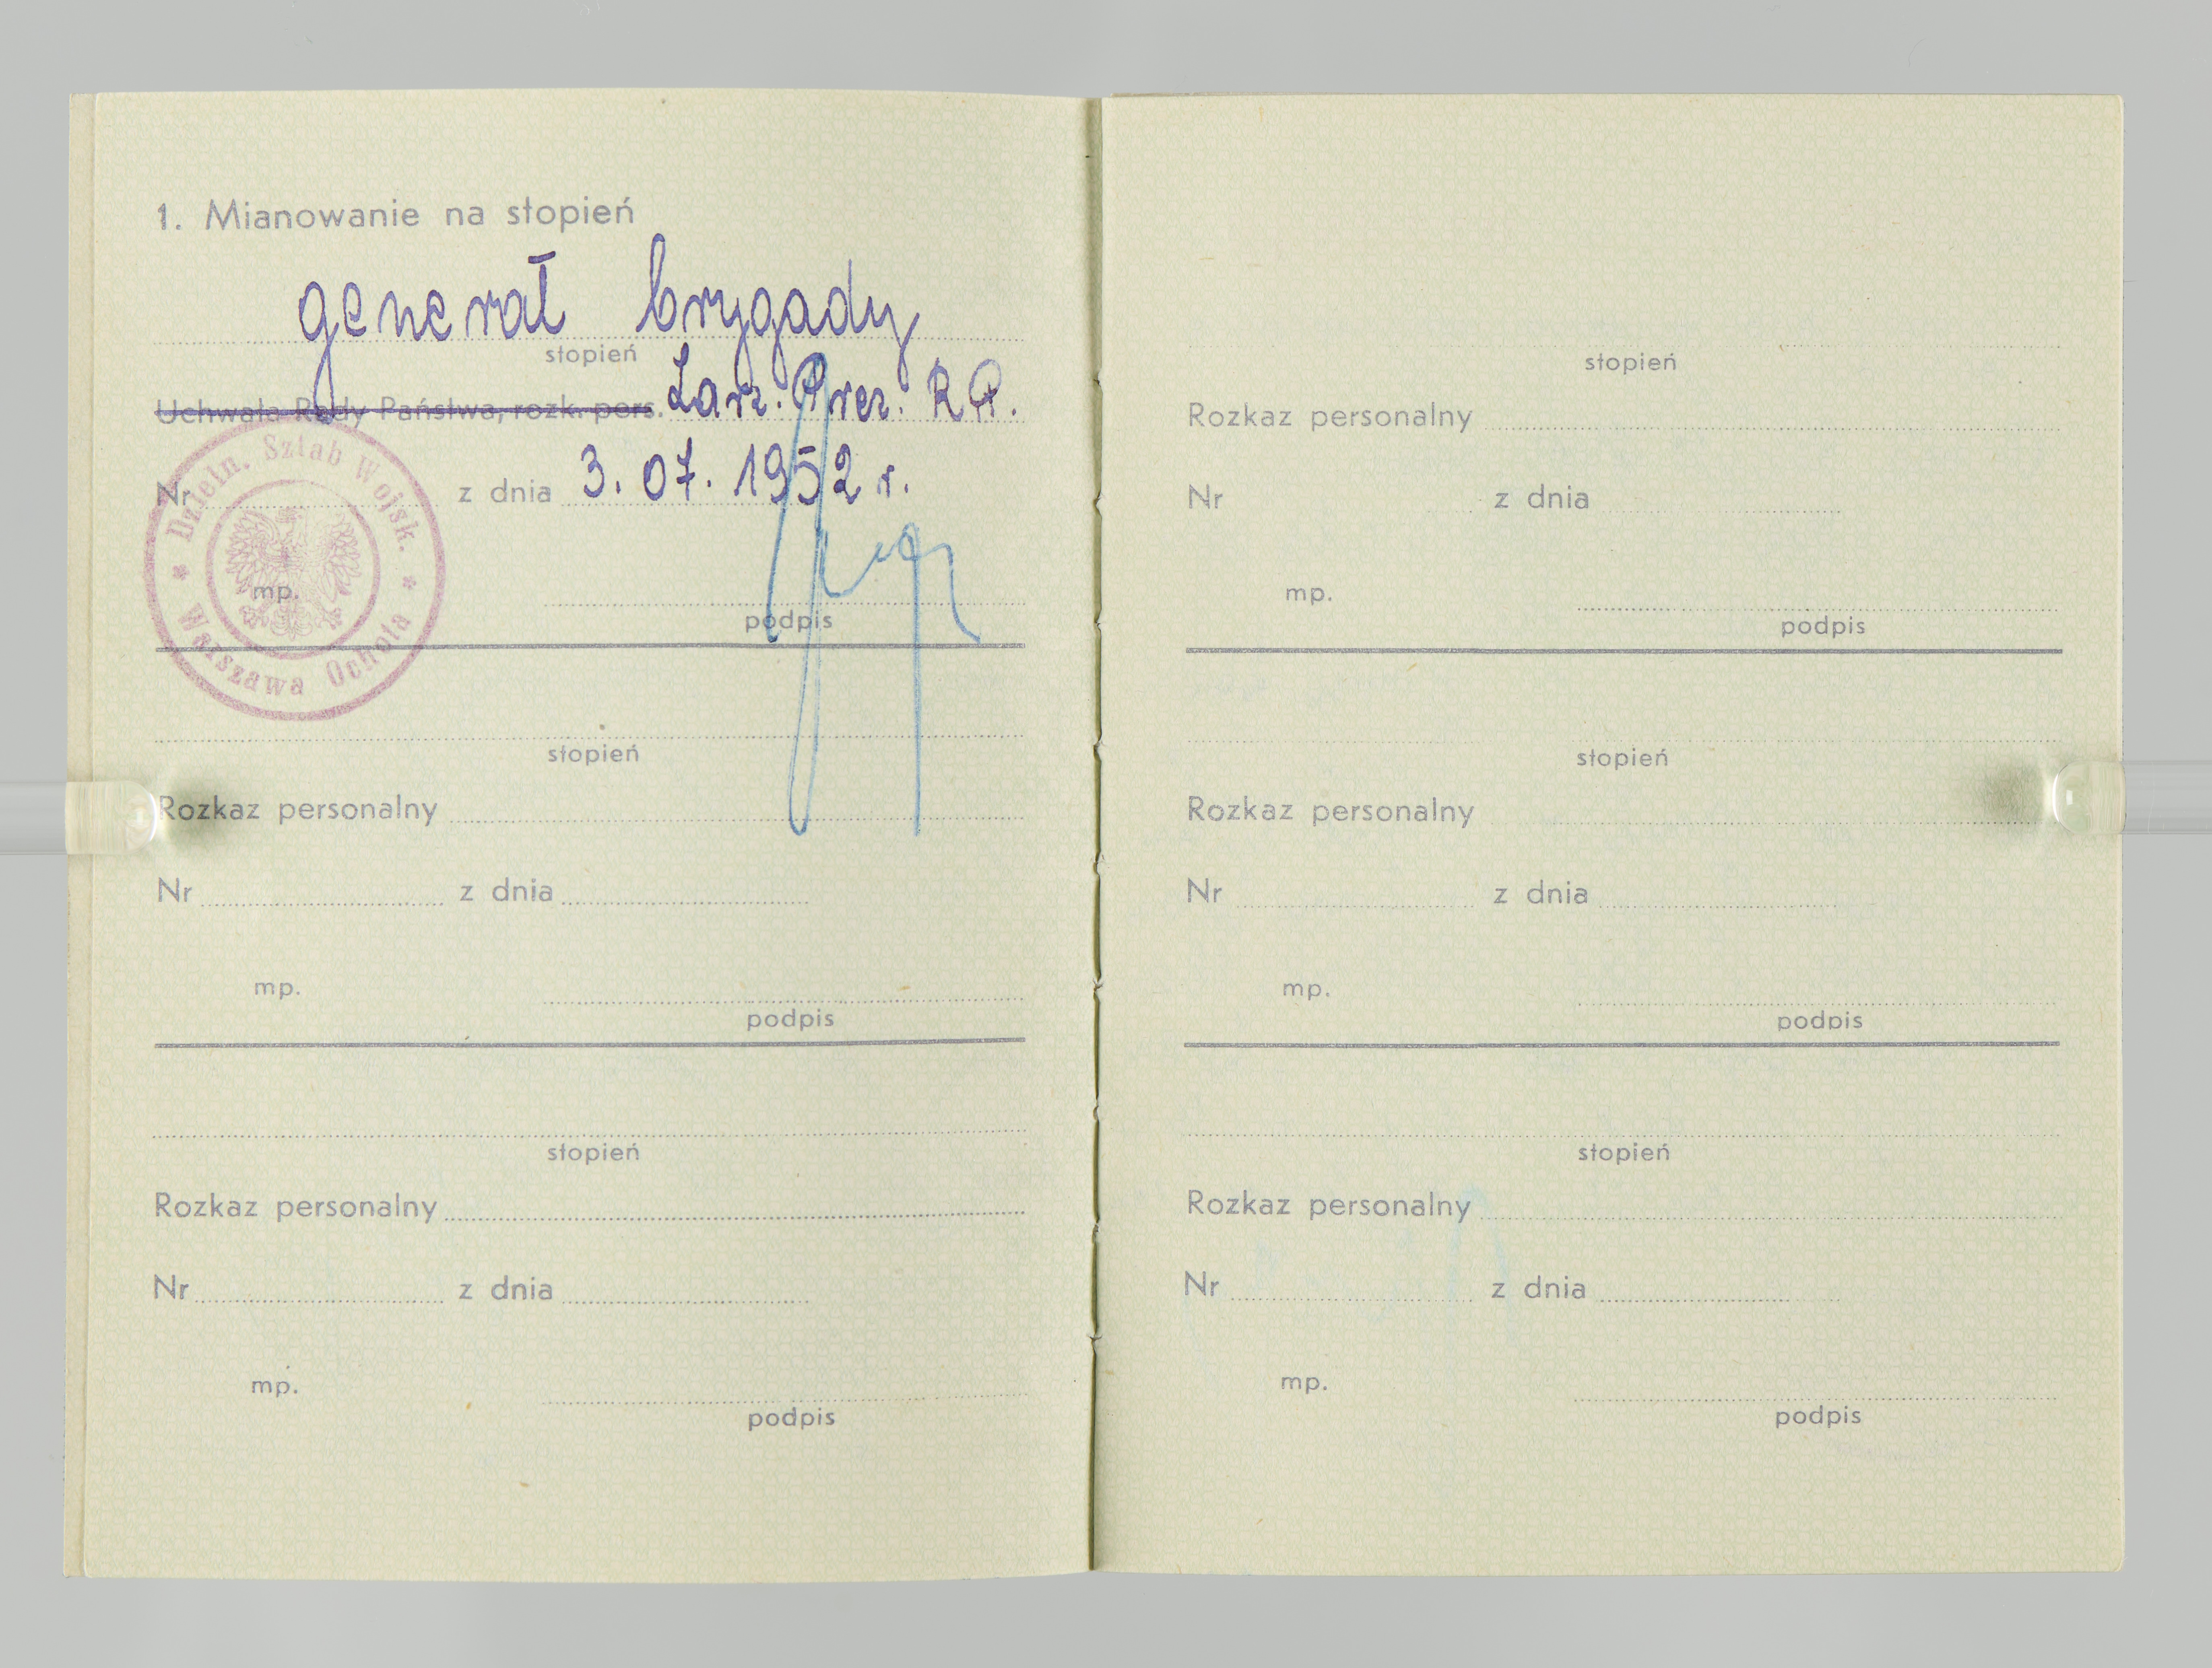 1. Mianowanie na stopień
generał brygady
stopień
Uchwała Rady Państwa, rozk. pers. Zarz. Prez. R P.
Nr z dnia 3. 07. 1952 r.
Dzieln. Sztab Wojsk.
* Warszawa Ochota *
mp.
podpis
stopień
Rozkaz personalny
Nr z dnia
mp.
podpis
stopień
Rozkaz personalny
Nr z dnia
mp.
podpis
stopień
Rozkaz personalny
Nr z dnia
mp.
podpis
stopień
Rozkaz personalny
Nr z dnia
mp.
podpis
stopień
Rozkaz personalny
Nr z dnia
mp.
podpis